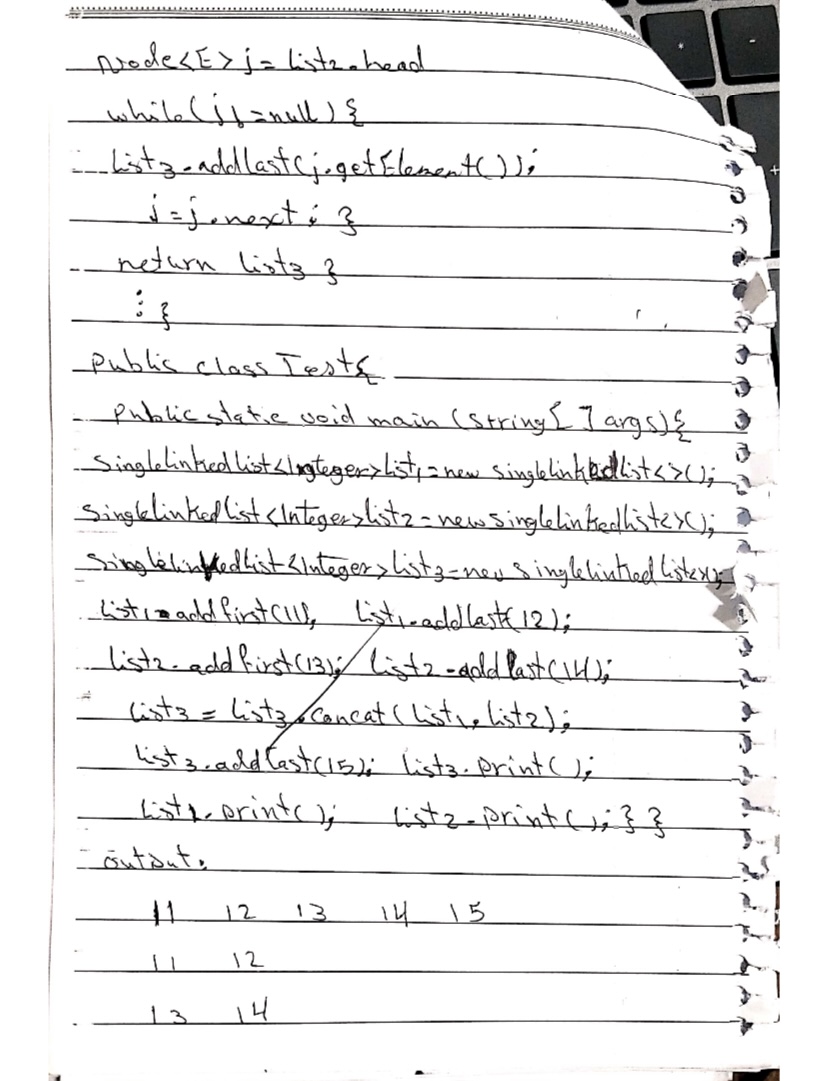 Node<E> j = list2.head
while(j!=null) {
list3.addlast(j.getElement());
j=j.next; }
return list3 }
⋮ }
public class Test{
public static void main (String[] args){
SingleLinkedList<Integer>list1=new singleLinkedlist<>();
SingleLinkedlist<Integer>list2=new singleLinkedlist<>();
SingleLinkedList<Integer>list3=new singleLinkedlist<>();
list1.addfirst(11), list1.addlast(12);
list2.addfirst(13); list2.addlast(14);
list3 = list3.concat(list1, list2);
list3.addlast(15); list3.print();
list1.print(); list2.print(); } }
output:
11 12 13 14 15
11 12
13 14